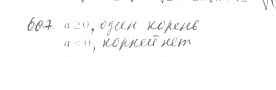 607 a ≥ 0, один корень
a < 0, корней нет